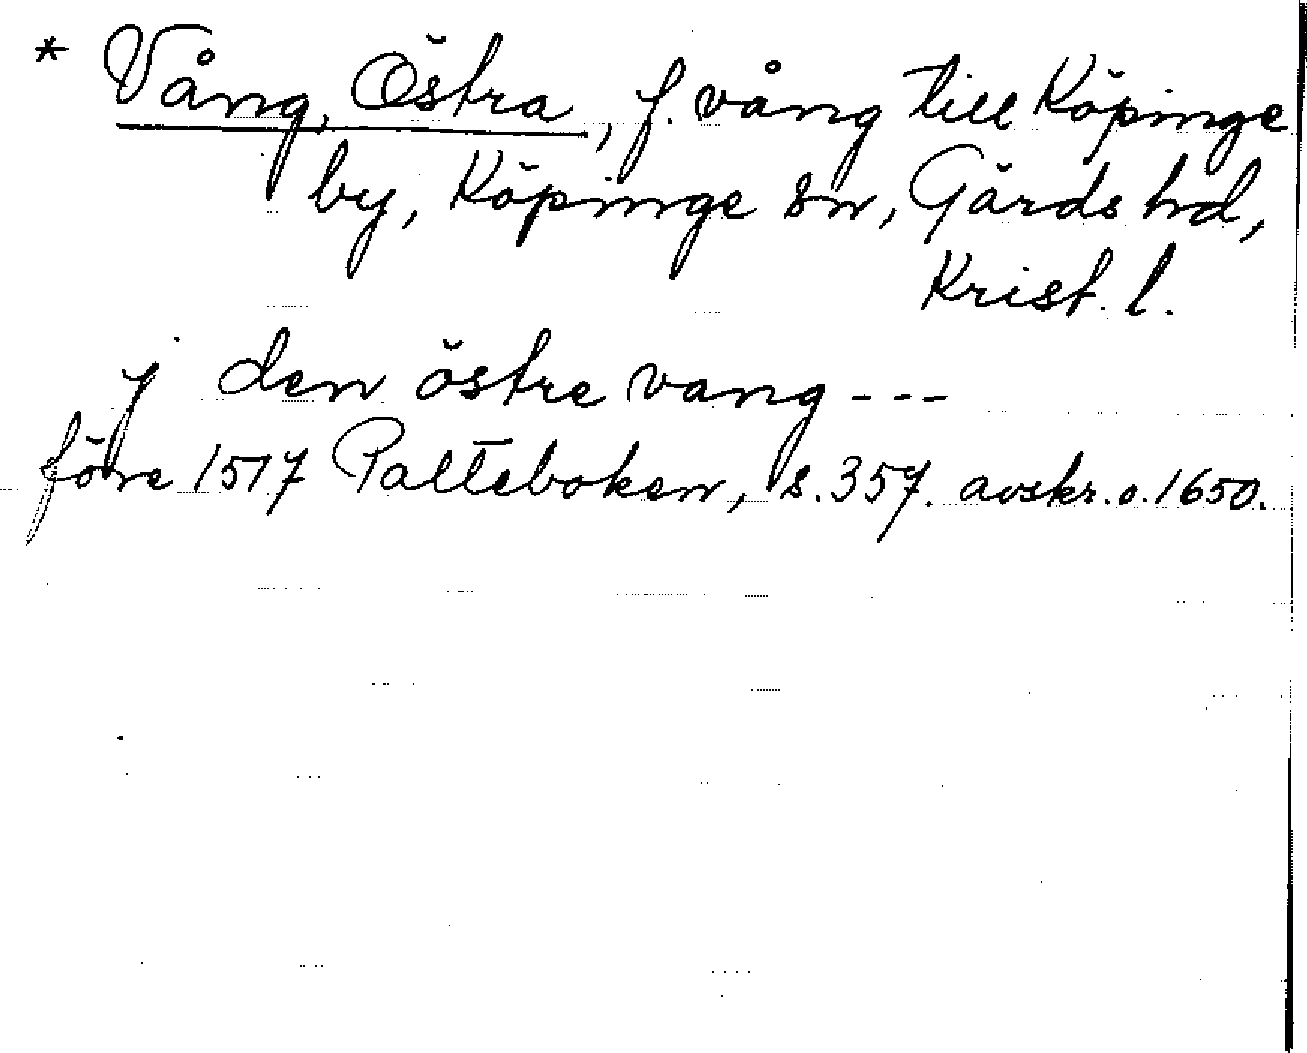 * Vång, Östra, f. vång till Köpinge
by, Köpinge sn, Gärds hd,
Krist. l.
j den östre vang ---
före 1517 Palteboken, s. 357. avskr. o. 1650.